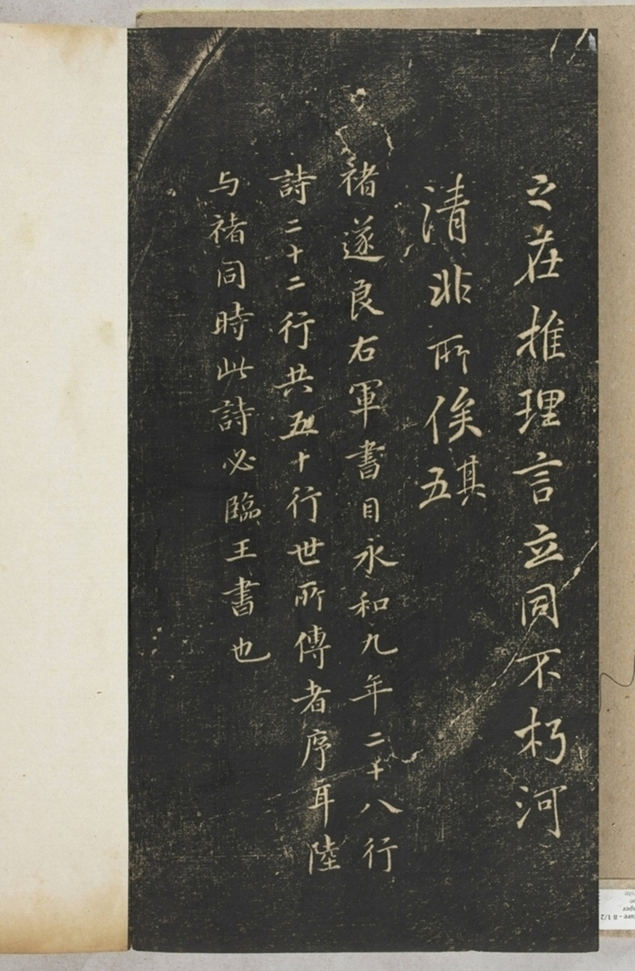 之在推理言立同不朽河
清非所俟其五
褚遂良右軍書目永和九年二十八行
詩二十二行共五十行世所傳者序耳陸
与褚同時此詩必臨王書也